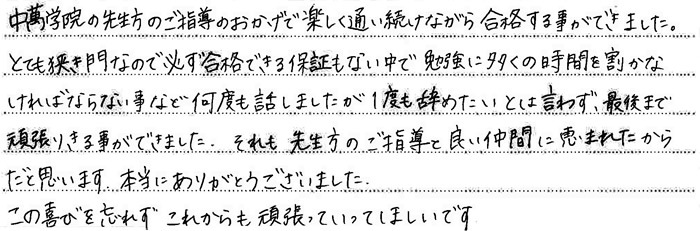 中萬学院の先生方のご指導のおかげで楽しく通い続けながら合格する事ができました。
とても狭き門なので必ず合格できる保証もない中で勉強に多くの時間を割かな
ければならない事など何度も話しましたが1度も辞めたいとは言わず、最後まで
頑張りきる事ができました。それも先生方のご指導と良い仲間に恵まれたから
だと思います。本当にありがとうございました。
この喜びを忘れずこれからも頑張っていってほしいです